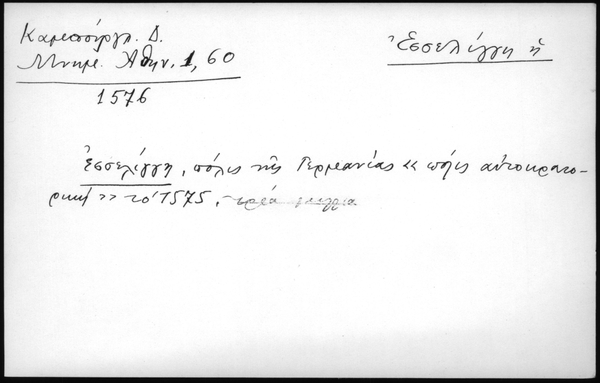 Καμπούργλ. Δ.
Μνημ. Ἀθην. 1, 60
1576
Ἐσσελίγγη ἡ
Ἐσσελίγγη, πόλις τῆς Γερμανίας «πόλις αὐτοκρατο-
ρική» τὸ 1575,